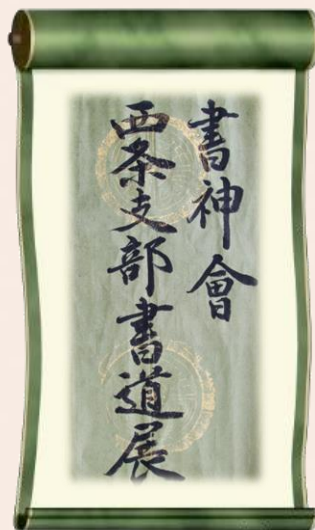 書神會
西条支部書道展